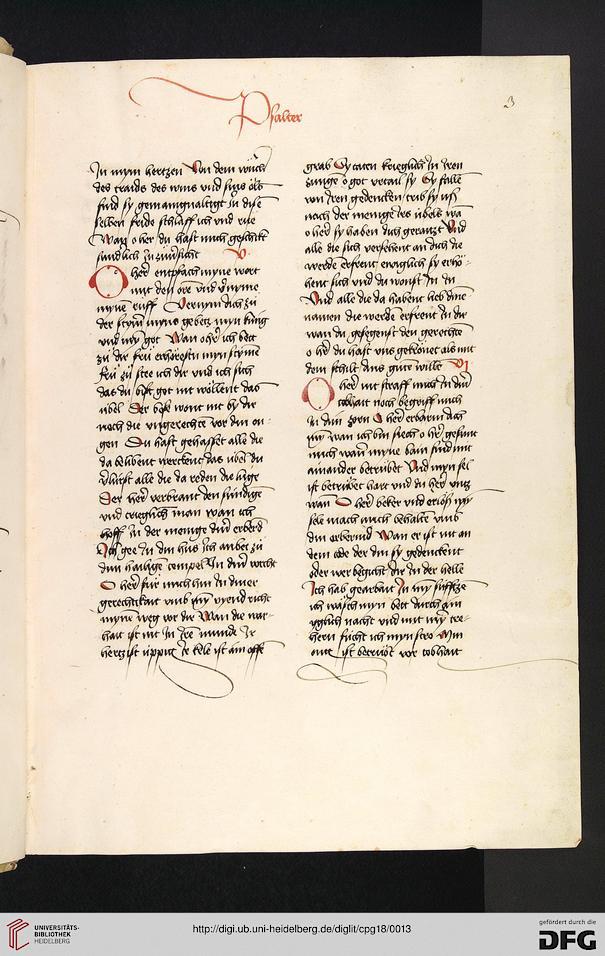 Psalter
3
In mym hertzen Von dem wůch
des traids des wins vnd sins öls
sind sy gemanigualtigt In dise
selben fride schlaff ich vnd rue
Wan o her du hast mich geschickt
sundlich zů zůuersicht V
O her entpfach myne wort
mit den oren vnd vernyme
myne ruff Vernym dich zů
der stym myns gebetz myn küng
vnd myn got Wan o her ich bett
zů dir frü erhörestu myn stymme
frü zů stee ich dir vnd ich sich
das du bist got nit wöllent das
übel Der böß wont nit by dir
noch die vngerechte vor din ou
gen Du hast gehasset alle die
da belibent werckent das übel du
verlürst alle die da reden die lüge
Der her verbrant den sündige
vnd trieglich man wan ich
hoff In der menige diner erberd
Ich gee In din hus Ich anbet zů
dim hailige tempel In diner vorcht
O her für mich hin In diner
gerechtikait vmb myn vyend richt
mynen weg vor dir Wan die war
hait ist nit In Ire munde Ir
hertz ist üppig Ir kele ist ain offe
grab Sy taten trieglich In Iren
zungen o got vertail sy Sy fallen
von Iren gedencken trib sy uß
nach der menige Irs übels wan
o her sy haben dich geraitzt Vnd
alle die sich versehent an dich die
werden erfreut ewiglich sy erhö
hent sich vnd du wonst In In
Vnd alle die da habent lieb dine
namen die werden erfreut In dir
wan du gesegenst den gerechte
o her du hast vns gekrönet als mit
dem schilt dins gůten willen VI
O her nit straff mich In diner
tobhait noch begriff mich
In dim zorn O her erbarm dich
myn wan ich bin siech o her gesunt
mich wan myne bain sind mit
ainander betrübet Vnd myn sel
ist betrübet hart vnd du her vntz
wan O her beker vnd erlös my
sele mach mich behalten vmb
din erbermd Wan er ist nit an
dem tode der din sy gedenckent
oder wer begicht dir In der helle
Ich hab gearbait In mym süfftze
ich wäsch myn bett durch ain
yglich nacht vnd mit myn tre
hern fücht ich myn stro Min
oug ist betrübt vor tobhait
UNIVERSITÄTS-
BIBLIOTHEK
HEIDELBERG
http://digi.ub.uni-heidelberg.de/diglit/cpg18/0013
gefördert durch die
DFG